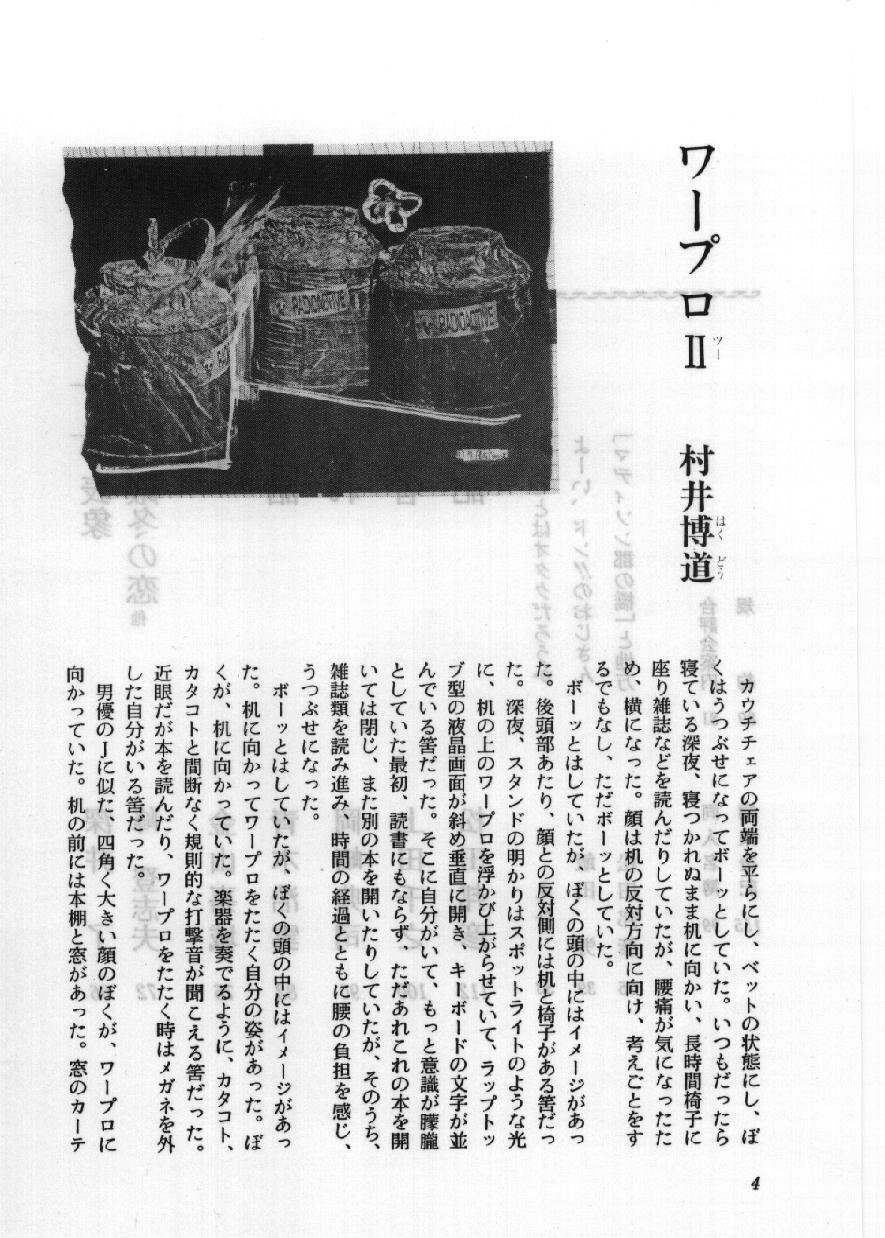 ワープロⅡ
ツー
村井博道
はくどう
RADIOACTIVE
RADIOACTIVE
カウチチェアの両端を平らにし、ベットの状態にし、ぼ
くはうつぶせになってボーッとしていた。いつもだったら
寝ている深夜、寝つかれぬまま机に向かい、長時間椅子に
座り雑誌などを読んだりしていたが、腰痛が気になったた
め、横になった。顔は机の反対方向に向け、考えごとをす
るでもなし、ただボーッとしていた。
ボーッとはしていたが、ぼくの頭の中にはイメージがあっ
た。後頭部あたり、顔との反対側には机と椅子がある筈だっ
た。深夜、スタンドの明かりはスポットライトのような光
に、机の上のワープロを浮かび上がらせていて、ラップトッ
プ型の液晶画面が斜め垂直に開き、キーボードの文字が並
んでいる筈だった。そこに自分がいて、もっと意識が朦朧
としていた最初、読書にもならず、ただあれこれの本を開
いては閉じ、また別の本を開いたりしていたが、そのうち、
雑誌類を読み進み、時間の経過とともに腰の負担を感じ、
うつぶせになった。
ボーッとはしていたが、ぼくの頭の中にはイメージがあっ
た。机に向かってワープロをたたく自分の姿があった。ぼ
くが、机に向かっていた。楽器を奏でるように、カタコト、
カタコトと間断なく規則的な打撃音が聞こえる筈だった。
近眼だが本を読んだり、ワープロをたたく時はメガネを外
した自分がいる筈だった。
男優のJに似た、四角く大きい顔のぼくが、ワープロに
向かっていた。机の前には本棚と窓があった。窓のカーテ
4